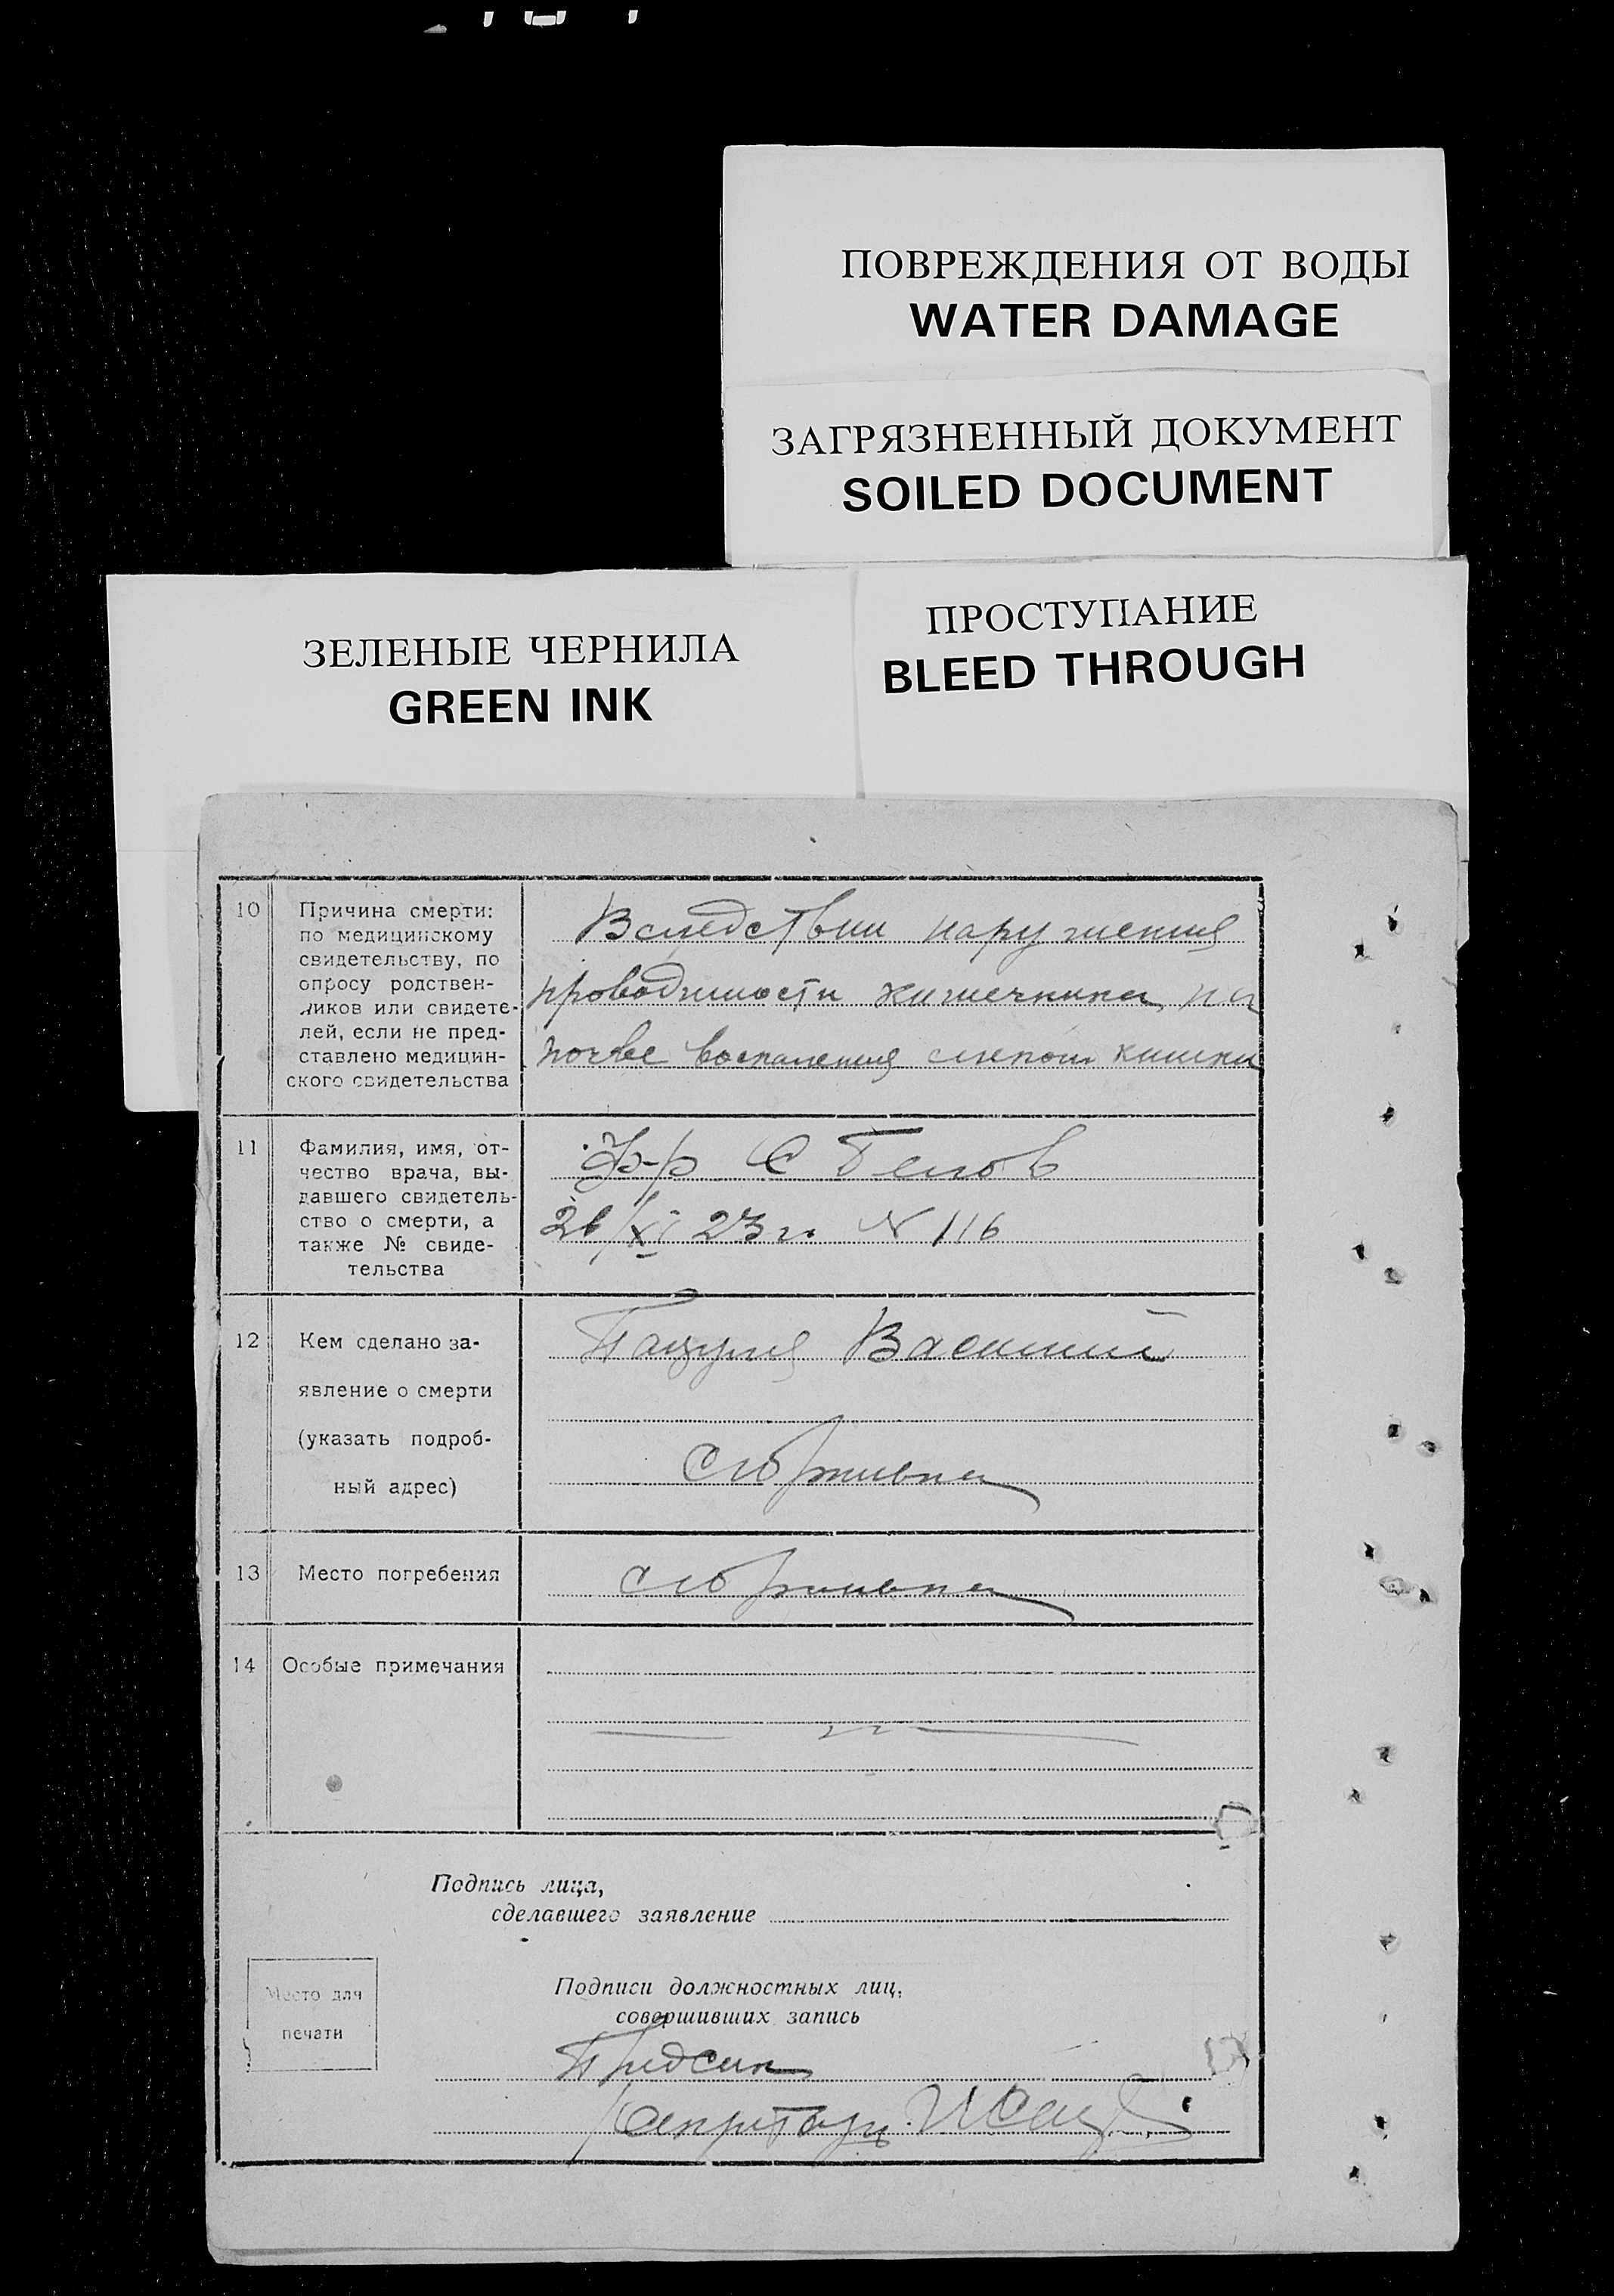 ПОВРЕЖДЕНИЯ ОТ ВОДЫ
WATER DAMAGE
ЗАГРЯЗНЕННЫЙ ДОКУМЕНТ
SOILED DOCUMENT
ЗЕЛЕНЫЕ ЧЕРНИЛА
GREEN INK
ПРОСТУПАНИЕ
BLEED THROUGH
10
Причина смерти:
по медицинскому
свидетельству, по
опросу родствен-
ников или свидете-
лей, если не пред-
ставлено медицин-
ского свидетельства
Вследствии нарушения
проводимости кишечника на
почве воспаления слепой кишки
11
Фамилия, имя, от-
чество врача, вы-
давшего свидетель-
ство о смерти, а
также № свиде-
тельства
С Белов
26/XI 23 г. N 116
12
Кем сделано за-
явление о смерти
(указать подроб-
ный адрес)
Василий
13
Место погребения
14
Особые примечания
Подпись лица,
сделавшего заявление
Место для
печати
Подписи должностных лиц,
совершивших запись
Секретарь